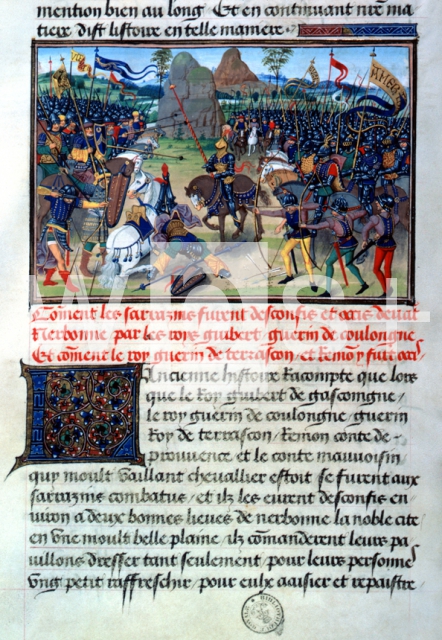 mention bien au long Et en continuant nr̃e ma
tiere dist listoire en telle maniere
Cōment les sarrazins furent desconfis et occis deuāt
Nerbonne par les roys guibert guerin de coulongne
Et cōment le roy guerin de terrascon et Remō y fure occis
Lancienne histoire Racompte que lors
que le Roy guibert de gascoingne /
le roy guerin de coulongne / guerin
Roy de terrascon / Remon conte de
prouuence et le conte mauuoisin
quy moult vaillant chevallier estoit se furent aux
sarrazins combatus / et ilz les eurent desconfis en
uiron a deux bonnes lieues de nerbonne la noble cite
en vne moult belle plaine / ilz commanderent leurs pa
uillons dresser tant seulement / pour leurs personnes
vng petit raffreschir / pour eulx aaisier et repaistre